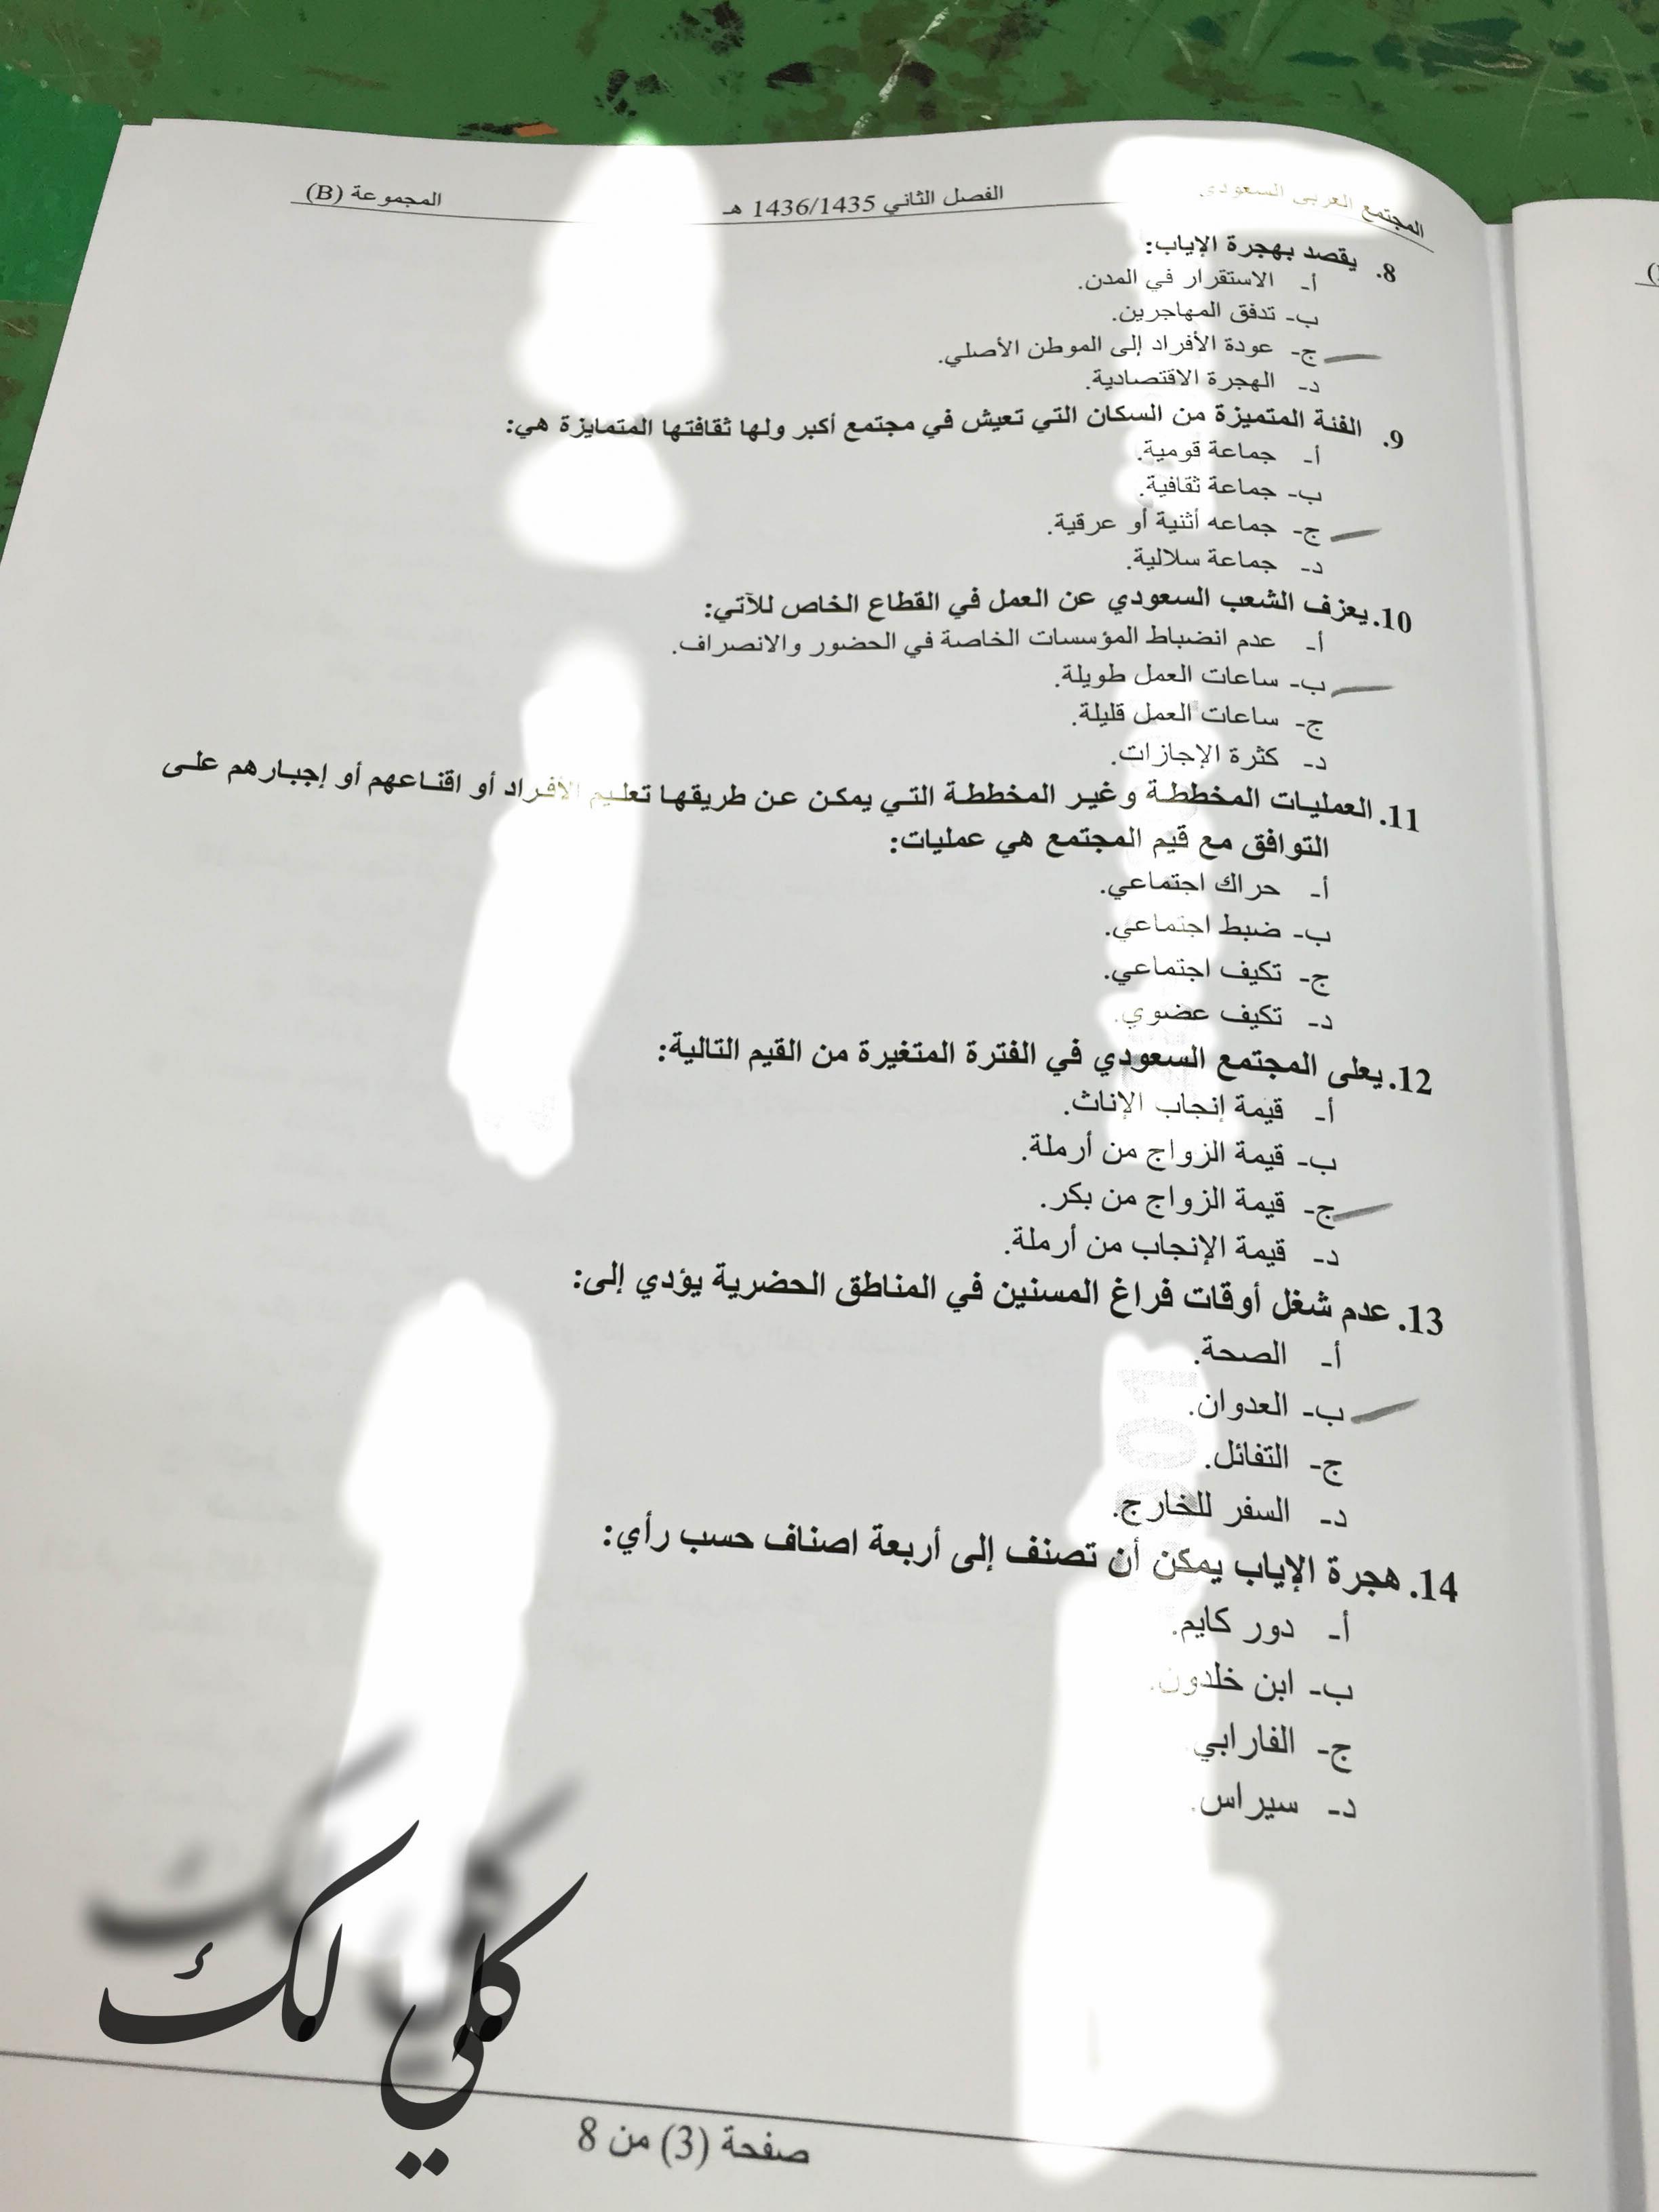 المجتمع العربي السعودي الفصل الثاني 1436/1435 هـ المجموعة (B)
8. يقصد بهجرة الإياب:
أ- الاستقرار في المدن.
ب- تدفق المهاجرين.
ج- عودة الأفراد إلى الموطن الأصلي.
د- الهجرة الاقتصادية.
9. الفئة المتميزة من السكان التي تعيش في مجتمع أكبر ولها ثقافتها المتمايزة هي:
أ- جماعة قومية.
ب- جماعة ثقافية.
ج- جماعه أثنية أو عرقية.
د- جماعة سلالية.
10. يعزف الشعب السعودي عن العمل في القطاع الخاص للآتي:
أ- عدم انضباط المؤسسات الخاصة في الحضور والانصراف.
ب- ساعات العمل طويلة.
ج- ساعات العمل قليلة.
د- كثرة الإجازات.
11. العمليات المخططة وغير المخططة التي يمكن عن طريقها تعليم الأفراد أو اقناعهم أو إجبارهم على
التوافق مع قيم المجتمع هي عمليات:
أ- حراك اجتماعي.
ب- ضبط اجتماعي.
ج- تكيف اجتماعي.
د- تكيف عضوي.
12. يعلى المجتمع السعودي في الفترة المتغيرة من القيم التالية:
أ- قيمة إنجاب الإناث.
ب- قيمة الزواج من أرملة.
ج- قيمة الزواج من بكر.
د- قيمة الإنجاب من أرملة.
13. عدم شغل أوقات فراغ المسنين في المناطق الحضرية يؤدي إلى:
أ- الصحة.
ب- العدوان.
ج- التفائل.
د- السفر للخارج.
14. هجرة الإياب يمكن أن تصنف إلى أربعة اصناف حسب رأي:
أ- دور كايم.
ب- ابن خلدون.
ج- الفارابي.
د- سيراس.
كلي لك
صفحة (3) من 8